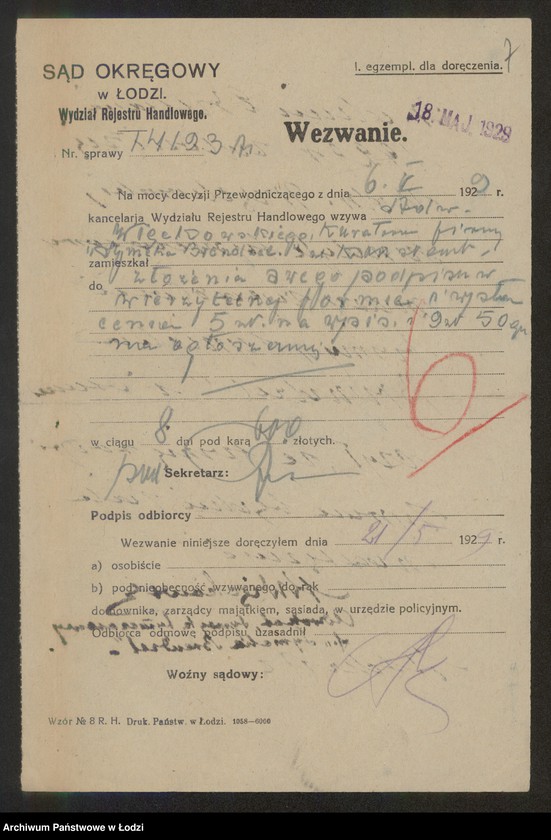 I. egzempl. dla doręczenia. 7
SĄD OKRĘGOWY
w ŁODZI.
Wydział Rejestru Handlowego.
Wezwanie.
18 MAJ. 1929
Nr. sprawy
Na mocy decyzji Przewodniczącego z dnia 6. V 1929 r.
kancelarja Wydziału Rejestru Handlowego wzywa adw.
Więckowskiego, Kuratora firmy
zamieszkał
do złożenia swego podpisu w
wierzytelnej formie i
5 zł. na wpis i 9 zł 50 gr
na ogłoszenie
6
w ciągu 8 dni pod karą 600 złotych.
Sekretarz:
Podpis odbiorcy
Wezwanie niniejsze doręczyłem dnia 21/5 1929 r.
a) osobiście
b) pod nieobecność wzywanego do rąk
domownika, zarządcy majątkiem, sąsiada, w urzędzie policyjnym.
Odbiorca odmowę podpisu uzasadnił
Woźny sądowy:
Wzór № 8 R. H. Druk. Państw. w Łodzi. 1058—6000
Archiwum Państwowe w Łodzi